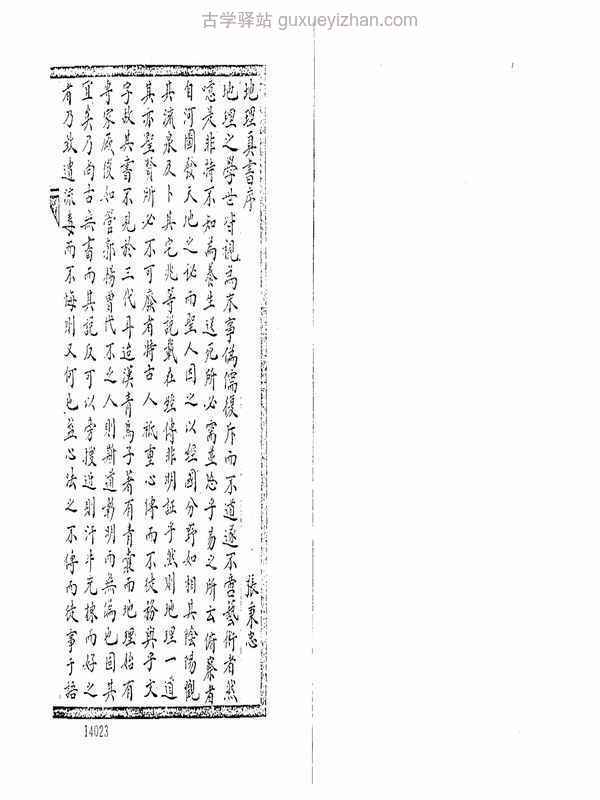 古学驿站 guxueyizhan.com
地理真書序 張秉忠
地理之學世皆視為末事偽儒復斥而不道遂不啻藝術者然
噫是非特不知為養生送死所必需並忽乎易之所云俯察者
自河圖發天地之祕而聖人因之以經國分野如相其陰陽觀
其流泉及卜其宅兆等說載在經傳非明証乎然則地理一道
其亦聖賢所必不可廢者特古人祗重心傳而不徒務與乎文
字故其書不見於三代迨漢青烏子著有青囊而地理始有
專家厥後如管郭楊曾代不乏人則斯道彰明而無偽也固其
宜矣乃尚古無書而其說反可以旁搜近則汗牛充棟而好之
者乃致遺流毒而不悔則又何也蓋心法之不傳而徒事于語
14023